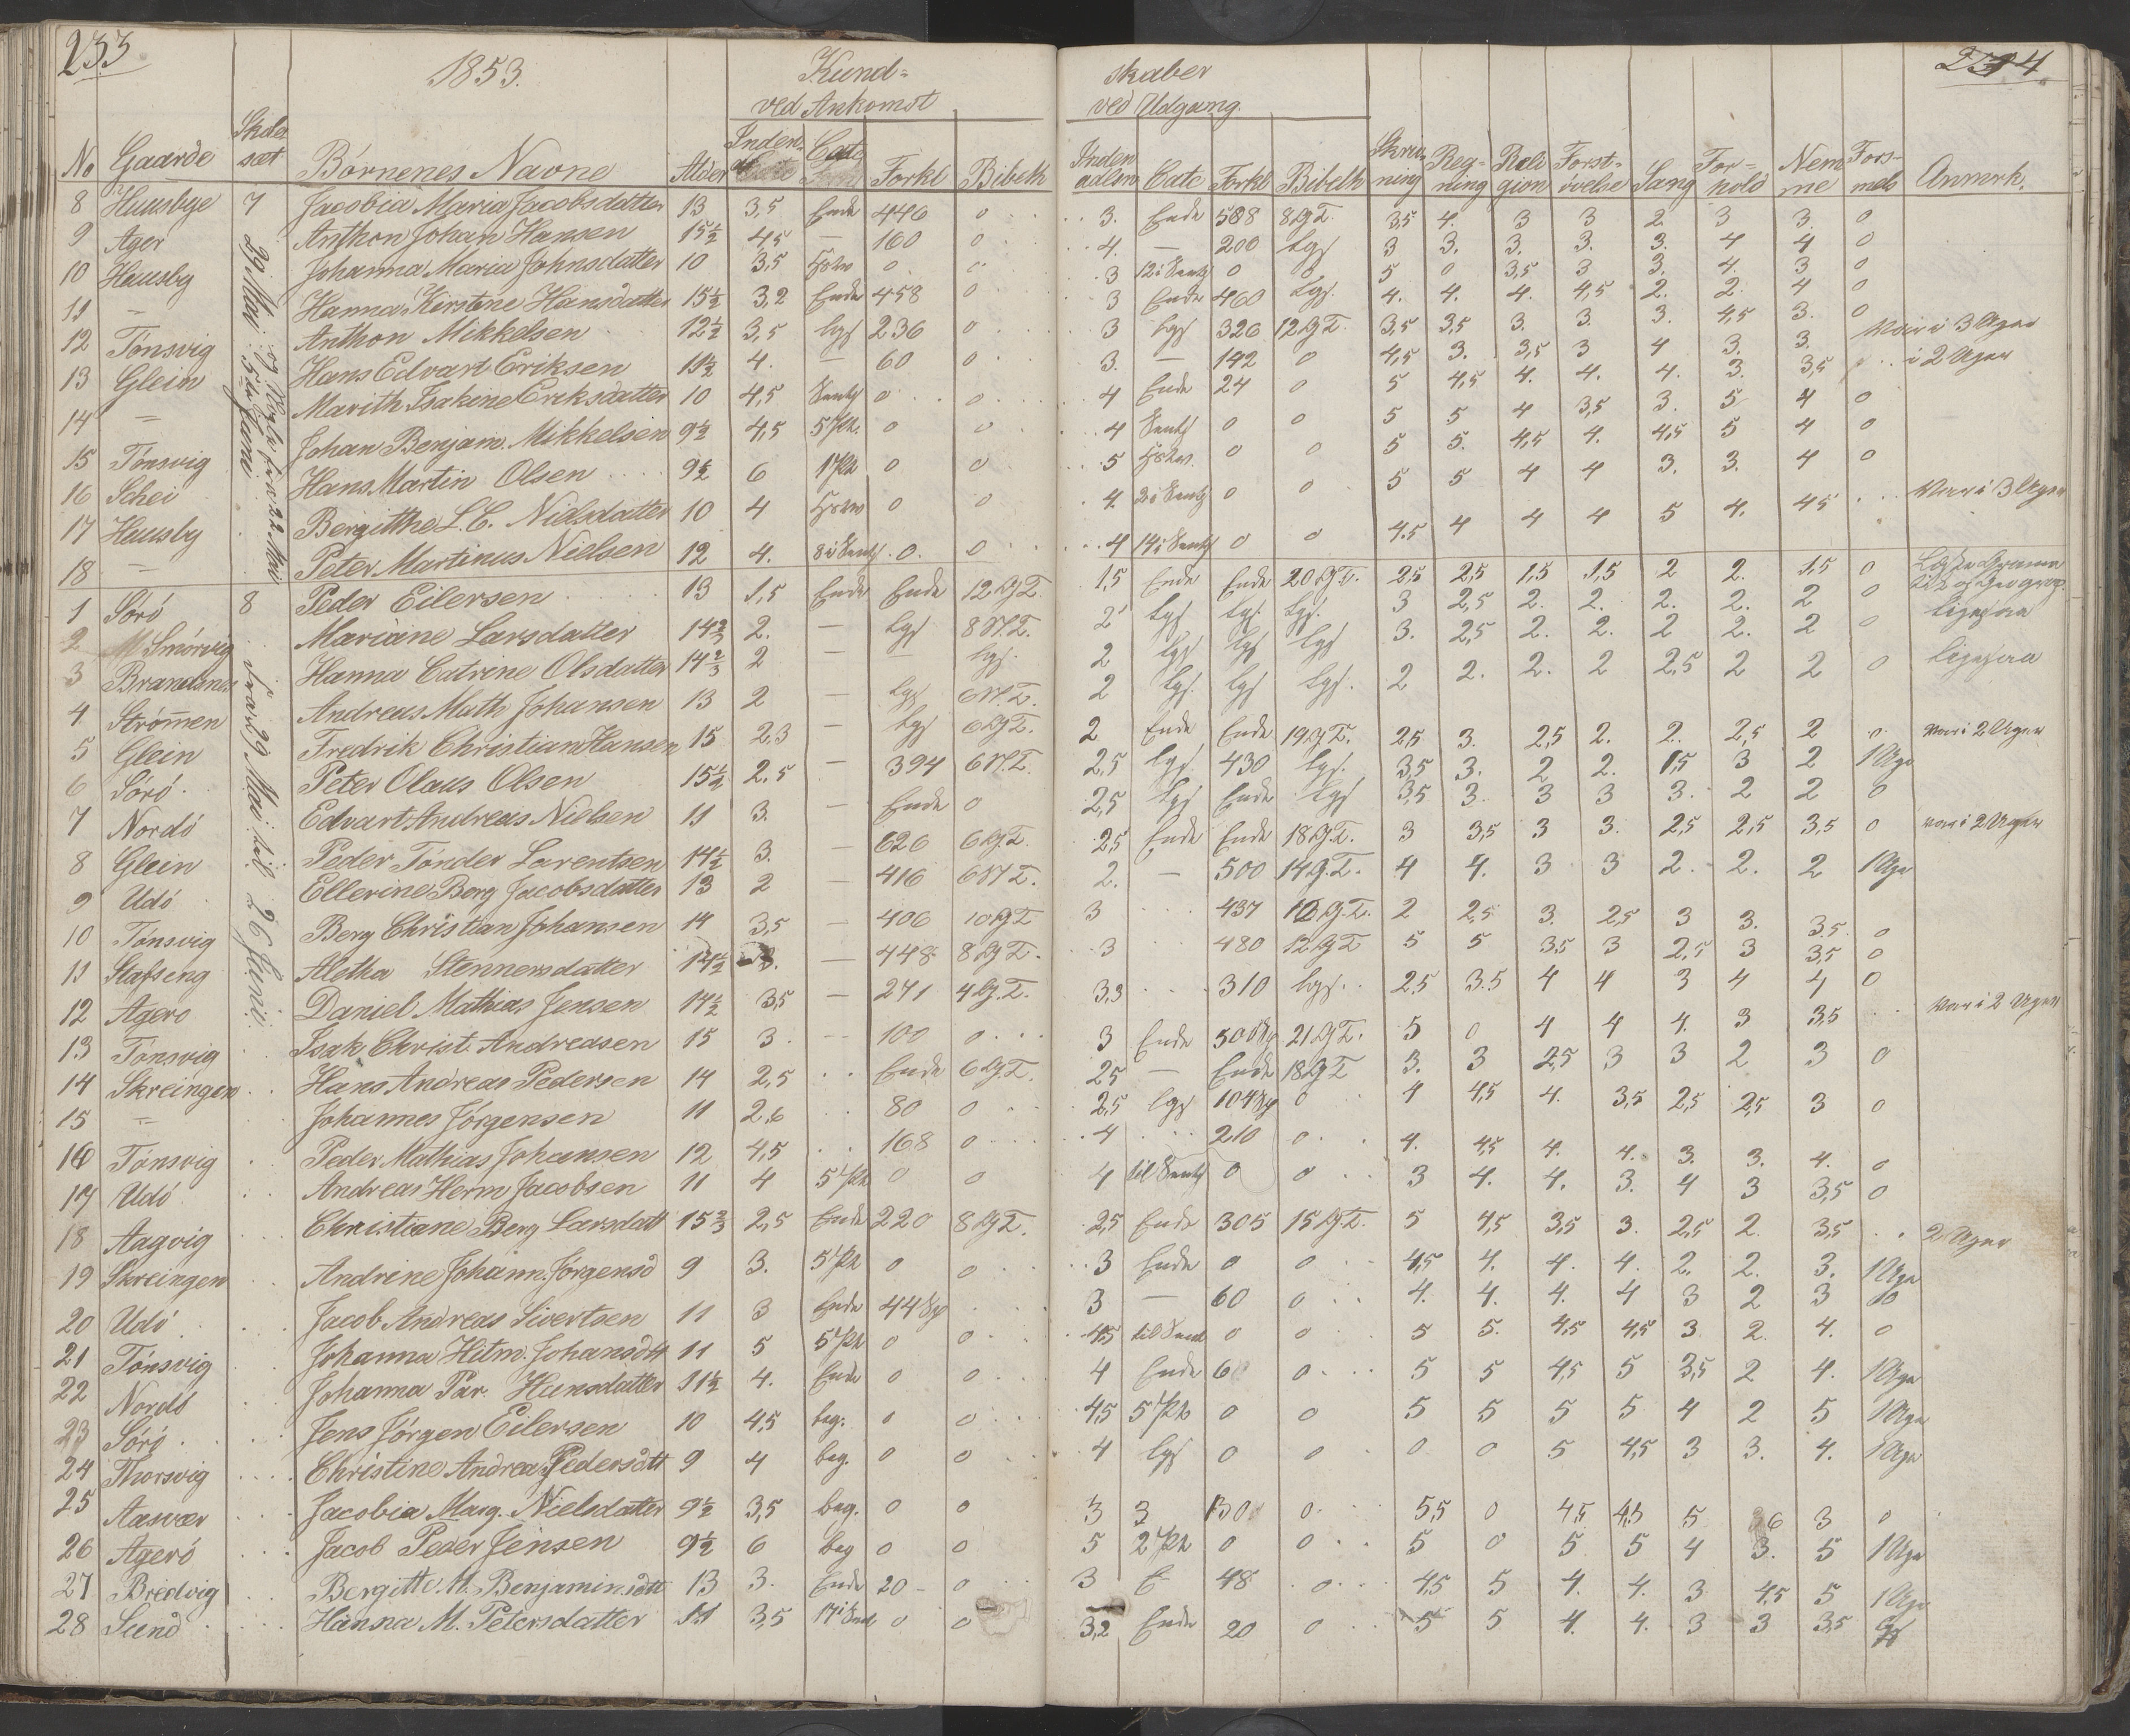 233
1853.
Kund-
ved Ankomst
skaber
ved Udgang.
234
No Gaarde Skolesæt Børnenes Navne Alder Inden Cate Forkl Bibelh Inden adlæsn Cate Forkl Bibelh Skrivning Regning Religion Forstøvelse Sang Forhold Nemme Forsmels Anmrk.
8 Huusbye 7 Jacobia Maria Jacobsdatter 13 3,5 Ende 446 0 3. Ende 588 8 G.T. 3,5 4. 3 3 2 3 3. 0
9 Ager Anthon Johan Hansen 15½ 4,5 — 160 0 4. — 200 Lgs 3 3. 3. 3. 3. 4 4 0
10 Huusby Johanna Maria Johnsdatter 10 3,5 0 0 3 12 i 0 0 5 0 3,5 3 3. 4. 3 0
11 — Hanna Kirstine Hansdatter 15½ 3,2 Ende 458 0 3 Ende 460 Lgs. 4. 4. 4. 4,5 2. 2. 4 0
12 Tønsvig Anthon Mikkelsen 12½ 3,5 Lgs 236 0 3 Lgs 326 12 G.T. 3,5 3,5 3. 3. 3. 4,5 3. 0
13 Glein Hans Edvart Eriksen 11½ 4. — 60 0 3. — 142 0 4,5 3. 3,5 3 4 3. 3. Var i 3 Uger
14 — Marith Isakine Eriksdatter 10 4,5 0 0 4 Ende 24 0 5 4,5 4. 4. 4. 3. 3,5 i 2 Uger
15 Tønsvig Johan Benjam. Mikkelsen 9½ 4,5 5 Pk. 0 0 4 0 0 5 5 4 3,5 3. 5 4 0
16 Schei Hans Martin Olsen 9½ 6 1 Pk 0 0 5 0 0 5 5. 4,5 4. 4,5 5 4 0
17 Huusby Bergitthe L. C. Nielsdatter 10 4 0 0 4. 2 i 0 0 5 5 4 4 3. 3. 4 0
18 — Peter Martinus Nielsen 12 4. 8 i 0. 0 4 14 i 0 0 4,5 4 4 4 5 4. 4,5 Var i 3 Uger
29 Mai : 5te Juni
1 Sørø 8 Peder Eilersen 13 1,5 Ende Ende 12 G.T. 1,5 Ende Ende 20 G.T. 2,5 2,5 1,5 1,5 2 2. 1,5 0
2 M Smørvig Mariane Larsdatter 14⅔ 2. — Lgs 8 N.T. 2 Lgs Lgs. Lgs. 3 2,5 2. 2. 2. 2. 2 0 Ligesaa
3 Brandsnes Hanna Catrine Olsdatter 14⅔ 2 — — Lgs. 2 Lgs Lgs Lgs 3. 2,5 2. 2. 2 2. 2 0
4 Strømen Andreas Math Johansen 13 2 — Lgs 6 N.T. 2 Lgs. Lgs Lgs. 2 2. 2. 2 2,5 2 2 0 Ligesaa
5 Glein Fredrik Christian Hansen 15 2,3 — Lgs 6 G.T. 2 Ende Ende 19 G.T. 2,5 3. 2,5 2. 2. 2,5 2 0 var i 2 Uger
6 Sørø Peter Olaus Olsen 15½ 2,5 — 394 6 N.T. 2,5 Lgs. 430 Lgs. 3,5 3. 2 2. 1,5 3 2 1 Uge
7 Nordø Edvart Andreas Nielsen 11 3. — Ende 0 2,5 Lgs Ende Lgs 3,5 3. 3 3 3. 2 2 0
8 Glein Peder Tønder Larentsen 14½ 3. — 626 6 G.T. 2,5 Ende Ende 18 G.T. 3 3,5 3 3. 2,5 2,5 3,5 0 var i 2 Uger
9 Udø Ellerine Berg Jacobsdatter 13 2 — 416 6 N.T. 2. — 500 14 G.T. 4 4. 3 3 2. 2. 2 1 Uge
10 Tønsvig Berg Christian Johansen 14 3,5 — 406 10 G.T. 3 437 12 G.T. 2 2,5 3. 2,5 3 3. 3,5 0
11 Stafseng Aletha Stennersdatter 14½ 3. — 448 8 G.T. 3 480 12 G.T. 5 5 3,5 3 2,5 3 3,5 0
12 Agerø Daniel Mathias Jensen 14½ 3,5 — 271 4 G.T. 3,3 310 Lgs. 2,5 3,5 4 4 3 4 4 0
13 Tønsvig Isak Christ. Andreasen 15 3. — 100 0 3 Ende 500 21 G.T. 5 0 4 4 4. 3 3,5 Var i 2 Uger
14 Skreingen Hans Andreas Pedersen 14 2,5 Ende 6 G.T. 2,5 — Ende 18 G.T. 3. 3 2,5 3 3 2 3 0
15 — Johannes Jørgensen 11 2,6 80 0 2,5 Lgs 104 0 4 4,5 4. 3,5 2,5 2,5 3 0
16 Tønsvig Peder Mathias Johansen 12 4,5 168 0 4 210 0 4. 4,5 4. 4. 3. 3. 4. 0
17 Udø Andreas Herm Jacobsen 11 4 5 Pk 0 0 4 til 0 0 3 4. 4. 3. 4 3 3,5 0
18 Aagvig Christiane Berg Larsdatt 15⅔ 2,5 Ende 220 8 G.T. 2,5 Ende 305 15 G.T. 5 4,5 3,5 3. 2,5 2. 3,5 2 Uger
19 Skreingen Andrine Johann. Jørgensd 9 3. 5 Pk 0 0 3 Ende 0 0 4,5 4. 4. 4. 2. 2. 3. 1 Uge
20 Udø Jacob Andreas Sivertsen 11 3 Ende 44 3 — 60 0 4. 4. 4. 4 3 2 3
21 Tønsvig Johanna Hilm. Johansdtt 11 5 5 Pk 0 0 4,5 til 0 0 5 5. 4,5 4,5 3 2. 4. 0
22 Nordø Johanna Par. Hansdatter 11½ 4. Ende 0 0 4 Ende 6 0 5 5 4,5 5 3,5 2 4. 1 Uge
23 Sørø Jens Jørgen Eilersen 10 4,5 beg. 0 0 4,5 5 Pk 0 0 5 5 5 5 4 2 5 1 Uge
24 Thorsvig Christine Andrea Pedersdtt 9 4 beg. 0 0 4 Lgs 0 0 0 0 5 4,5 3 3. 4. 1 Uge
25 Aasvær Jacobia Marg. Nielsdatter 9½ 3,5 beg. 0 0 3 3 130 0 5,5 0 4,5 4,5 5 6 3 0
26 Agerø Jacob Peder Jensen 9½ 6 beg 0 0 5 2 Pk 0 0 5 0 5 5 4 3. 5 1 Uge
27 Bredvig Bergitte M. Benjaminsdtt 13 3. Ende 20 0 3 E 48 0 4,5 5 4. 4. 3 4,5 5 1 Uge
28 Sund Hanna M. Petersdatter 11 3,5 17 i 0 0 3,2 Ende 20 0 5 5 4. 4. 3 3 3,5
fra 29 Mai til 26 Juni